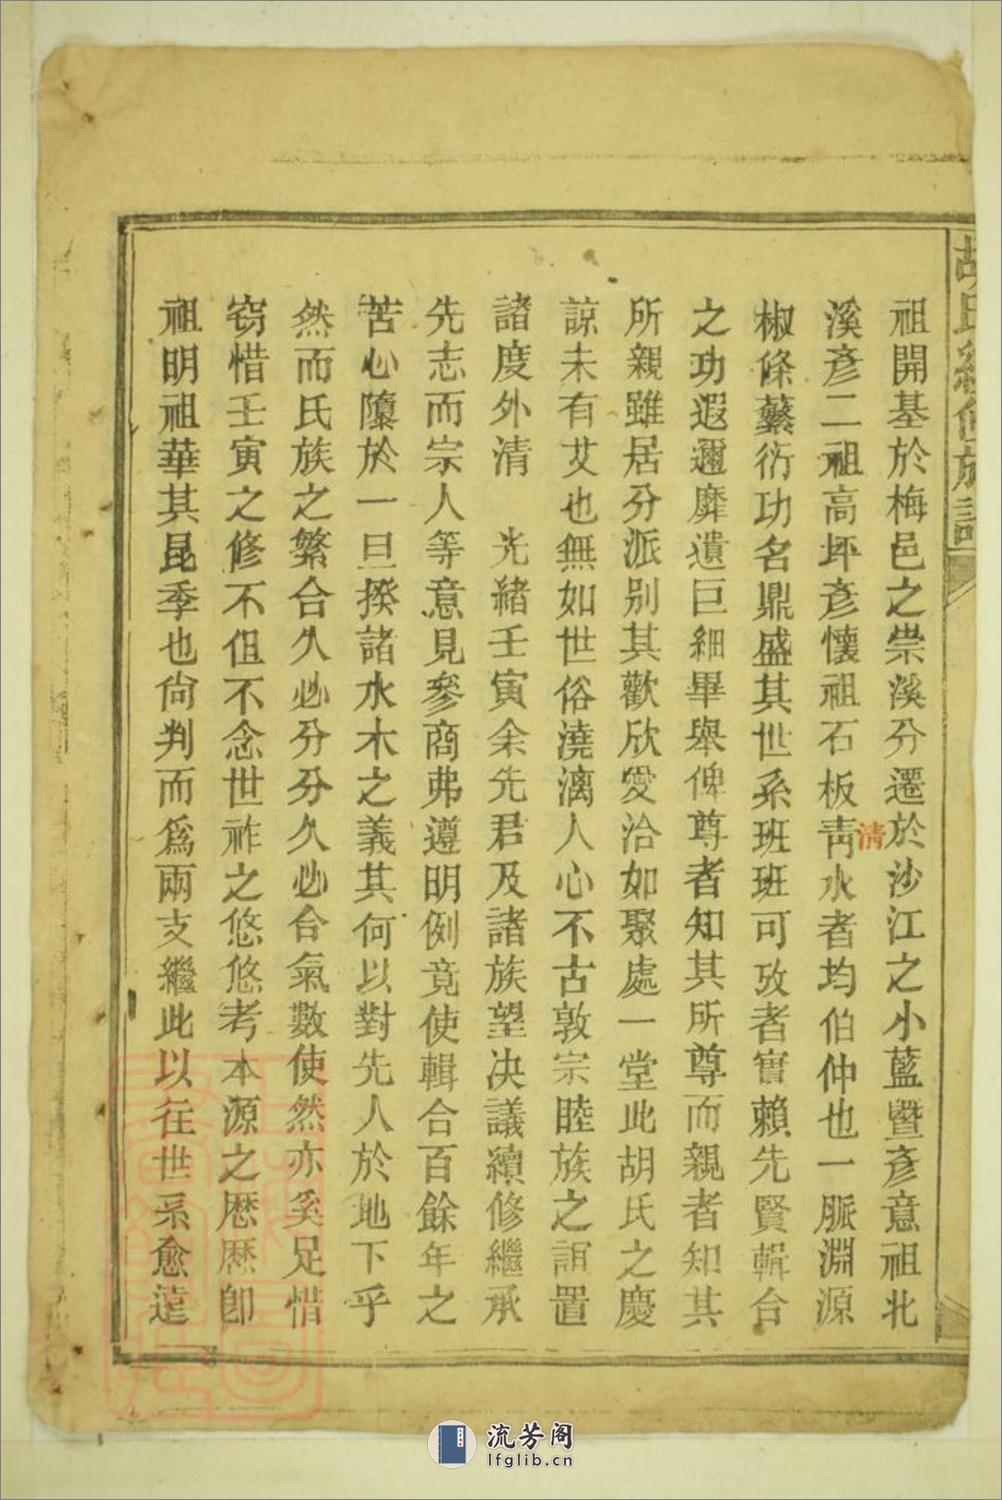 胡氏續修族譜
祖開基於梅邑之崇溪分遷於沙江之小藍暨彥意祖北
溪彥二祖高坪彥懷祖石板靑水者均伯仲也一脈淵源
清
椒條蘩衍功名鼎盛其世系班班可攷者實賴先賢輯合
之功遐邇靡遺巨細畢舉俾尊者知其所尊而親者知其
所親雖居分派別其歡欣愛洽如聚處一堂此胡氏之慶
諒未有艾也無如世俗澆漓人心不古敦宗睦族之誼置
諸度外清 光緒壬寅余先君及諸族望决議續修繼承
先志而宗人等意見參商弗遵明例竟使輯合百餘年之
苦心隳於一旦揆諸水木之義其何以對先人於地下乎
然而氏族之繁合久必分分久必合氣數使然亦奚足惜
窃惜壬寅之修不但不念世祚之悠悠考本源之歷歷卽
祖明祖華其昆季也尙判而爲兩支繼此以往世系愈遠
流芳阁
lfglib.cn